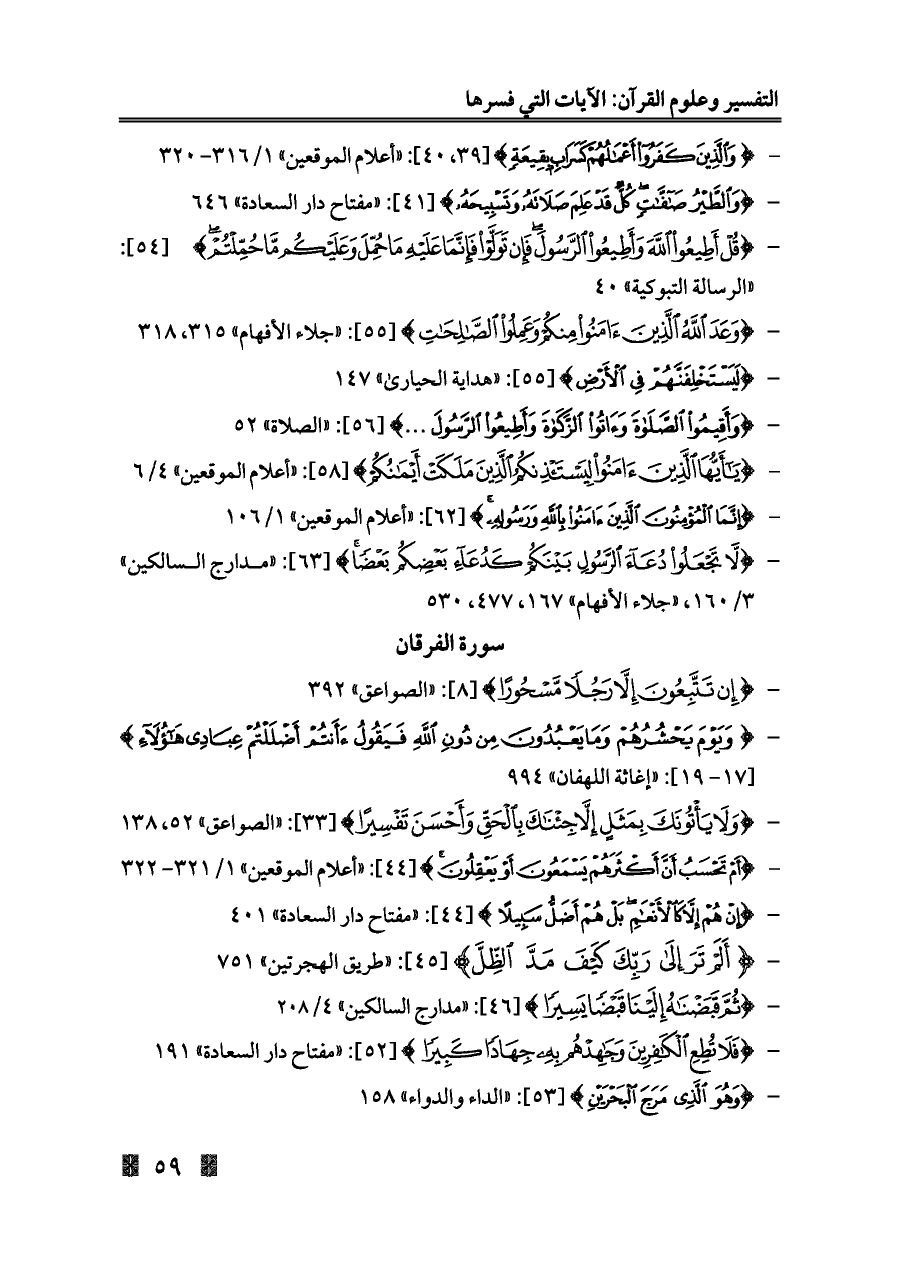 التفسير وعلوم القرآن: الآيات التي فسرها
– ﴿وَٱلَّذِينَ كَفَرُوٓا۟ أَعْمَـٰلُهُمْ كَسَرَابٍۭ بِقِيعَةٍ﴾ [٣٩، ٤٠]: «أعلام الموقعين» ١/ ٣١٦– ٣٢٠
– ﴿وَٱلطَّيْرُ صَـٰٓفَّـٰتٍۖ كُلٌّ قَدْ عَلِمَ صَلَاتَهُۥ وَتَسْبِيحَهُۥ﴾ [٤١]: «مفتاح دار السعادة» ٦٤٦
– ﴿قُلْ أَطِيعُوا۟ ٱللَّهَ وَأَطِيعُوا۟ ٱلرَّسُولَۖ فَإِن تَوَلَّوْا۟ فَإِنَّمَا عَلَيْهِ مَا حُمِّلَ وَعَلَيْكُم مَّا حُمِّلْتُمْۖ﴾ [٥٤]:
«الرسالة التبوكية» ٤٠
– ﴿وَعَدَ ٱللَّهُ ٱلَّذِينَ ءَامَنُوا۟ مِنكُمْ وَعَمِلُوا۟ ٱلصَّـٰلِحَـٰتِ﴾ [٥٥]: «جلاء الأفهام» ٣١٥، ٣١٨
– ﴿لَيَسْتَخْلِفَنَّهُمْ فِى ٱلْأَرْضِ﴾ [٥٥]: «هداية الحيارىٰ» ١٤٧
– ﴿وَأَقِيمُوا۟ ٱلصَّلَوٰةَ وَءَاتُوا۟ ٱلزَّكَوٰةَ وَأَطِيعُوا۟ ٱلرَّسُولَ ...﴾ [٥٦]: «الصلاة» ٥٢
– ﴿يَـٰٓأَيُّهَا ٱلَّذِينَ ءَامَنُوا۟ لِيَسْتَـْٔذِنكُمُ ٱلَّذِينَ مَلَكَتْ أَيْمَـٰنُكُمْ﴾ [٥٨]: «أعلام الموقعين» ٤/ ٦
– ﴿إِنَّمَا ٱلْمُؤْمِنُونَ ٱلَّذِينَ ءَامَنُوا۟ بِٱللَّهِ وَرَسُولِهِۦۚ﴾ [٦٢]: «أعلام الموقعين» ١/ ١٠٦
– ﴿لَّا تَجْعَلُوا۟ دُعَآءَ ٱلرَّسُولِ بَيْنَكُمْ كَدُعَآءِ بَعْضِكُم بَعْضًاۚ﴾ [٦٣]: «مـدارج الـسالكين»
٣/ ١٦٠، «جلاء الأفهام» ١٦٧، ٤٧٧، ٥٣٠
سورة الفرقان
– ﴿إِن تَتَّبِعُونَ إِلَّا رَجُلًا مَّسْحُورًا﴾ [٨]: «الصواعق» ٣٩٢
– ﴿وَيَوْمَ يَحْشُرُهُمْ وَمَا يَعْبُدُونَ مِن دُونِ ٱللَّهِ فَيَقُولُ ءَأَنتُمْ أَضْلَلْتُمْ عِبَادِى هَـٰٓؤُلَآءِ﴾
[١٧– ١٩]: «إغاثة اللهفان» ٩٩٤
– ﴿وَلَا يَأْتُونَكَ بِمَثَلٍ إِلَّا جِئْنَـٰكَ بِٱلْحَقِّ وَأَحْسَنَ تَفْسِيرًا﴾ [٣٣]: «الصواعق» ٥٢، ١٣٨
– ﴿أَمْ تَحْسَبُ أَنَّ أَكْثَرَهُمْ يَسْمَعُونَ أَوْ يَعْقِلُونَۚ﴾ [٤٤]: «أعلام الموقعين» ١/ ٣٢١– ٣٢٢
– ﴿إِنْ هُمْ إِلَّا كَٱلْأَنْعَـٰمِۖ بَلْ هُمْ أَضَلُّ سَبِيلًا﴾ [٤٤]: «مفتاح دار السعادة» ٤٠١
– ﴿أَلَمْ تَرَ إِلَىٰ رَبِّكَ كَيْفَ مَدَّ ٱلظِّلَّ﴾ [٤٥]: «طريق الهجرتين» ٧٥١
– ﴿ثُمَّ قَبَضْنَـٰهُ إِلَيْنَا قَبْضًا يَسِيرًا﴾ [٤٦]: «مدارج السالكين» ٤/ ٢٠٨
– ﴿فَلَا تُطِعِ ٱلْكَـٰفِرِينَ وَجَـٰهِدْهُم بِهِۦ جِهَادًا كَبِيرًا﴾ [٥٢]: «مفتاح دار السعادة» ١٩١
– ﴿وَهُوَ ٱلَّذِى مَرَجَ ٱلْبَحْرَيْنِ﴾ [٥٣]: «الداء والدواء» ١٥٨
٥٩